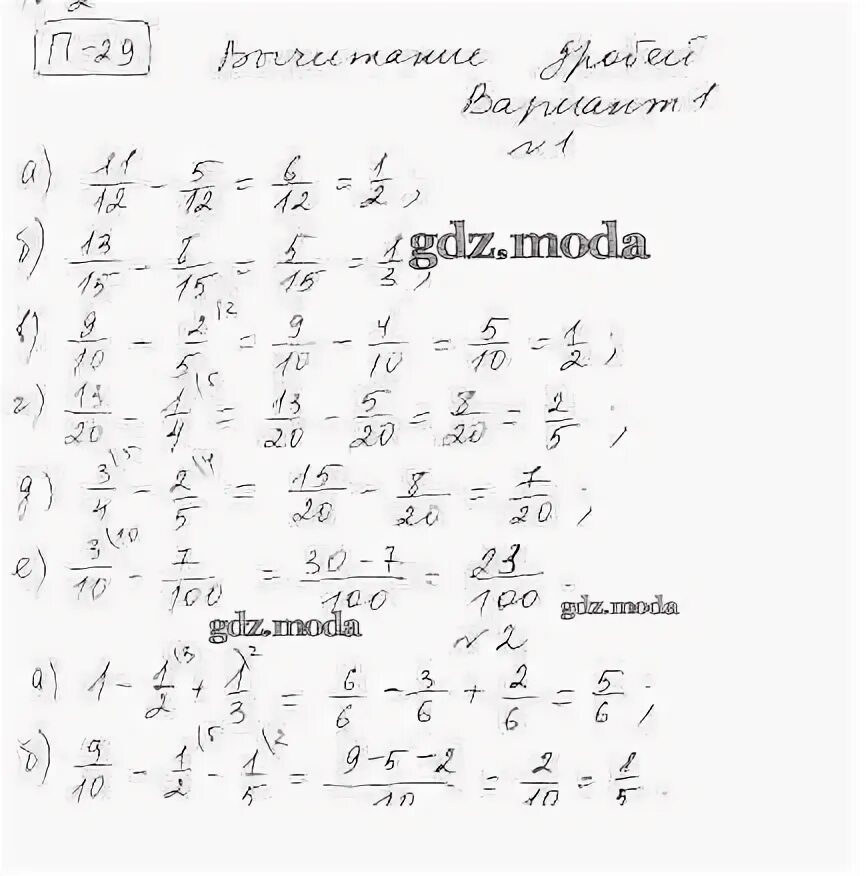 2
П-29 Вычитание дробей
Вариант 1
№1
а) 11/12 - 5/12 = 6/12 = 1/2;
б) 13/15 - 8/15 = 5/15 = 1/3;
gdz.moda
в) 9/10 - 2/5 \2 = 9/10 - 4/10 = 5/10 = 1/2;
г) 13/20 - 1/4 \5 = 13/20 - 5/20 = 8/20 = 2/5;
д) 3/4 \5 - 2/5 \4 = 15/20 - 8/20 = 7/20;
е) 3/10 \10 - 7/100 = 30-7/100 = 23/100.
gdz.moda
gdz.moda
№2
а) 1 - 1/2 \3 + 1/3 \2 = 6/6 - 3/6 + 2/6 = 5/6;
б) 9/10 - 1/2 \5 - 1/5 \2 = 9-5-2/10 = 2/10 = 1/5.